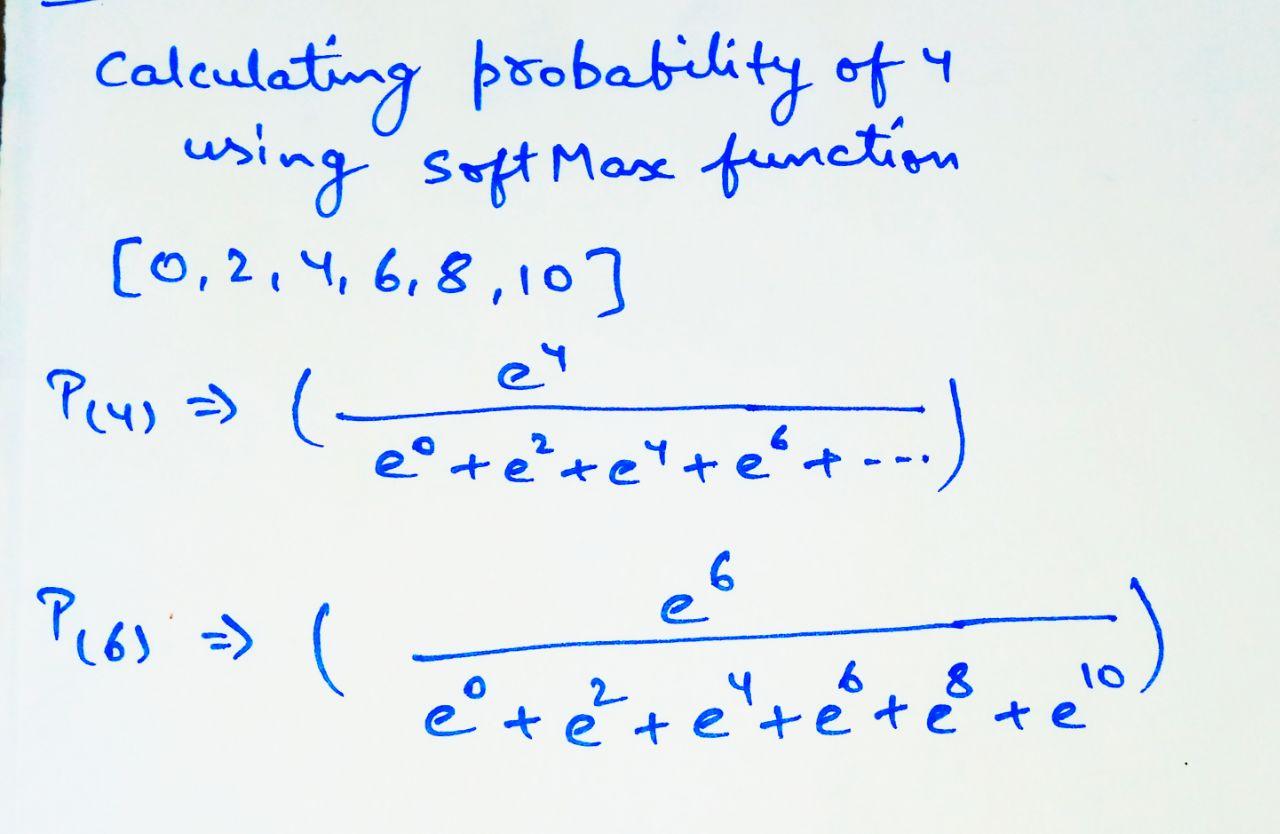 Calculating probability of 4
using SoftMax function
[0, 2, 4, 6, 8, 10]
P(4) ⇒ ( e⁴ / e⁰ + e² + e⁴ + e⁶ + ---- )
P(6) ⇒ ( e⁶ / e⁰ + e² + e⁴ + e⁶ + e⁸ + e¹⁰ )